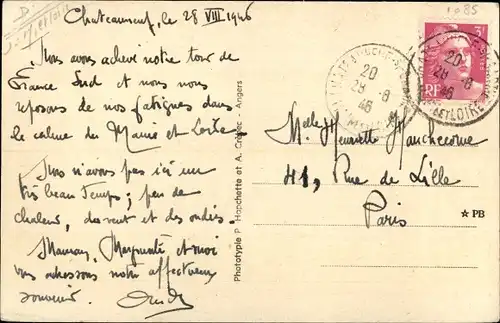 Chateauneuf, le 28 VIII 1946
Nous avons achevé notre tour de
France Sud et nous nous
reposons de nos fatigues dans
le calme du Maine et Loire
Nous n'avons pas ici un
très beau temps; peu de
chaleur, du vent et des ondées.
Maman, Marguerite et moi
vous adressons notre affectueux
souvenir.
Phototypie P. Hanchette et A. - Angers
1085
3F
RF
20
28-8
46
20
28-8
46
ET LOIRE
Melle Henriette Hanchecorne
41, Rue de Lille
Paris
★ PB